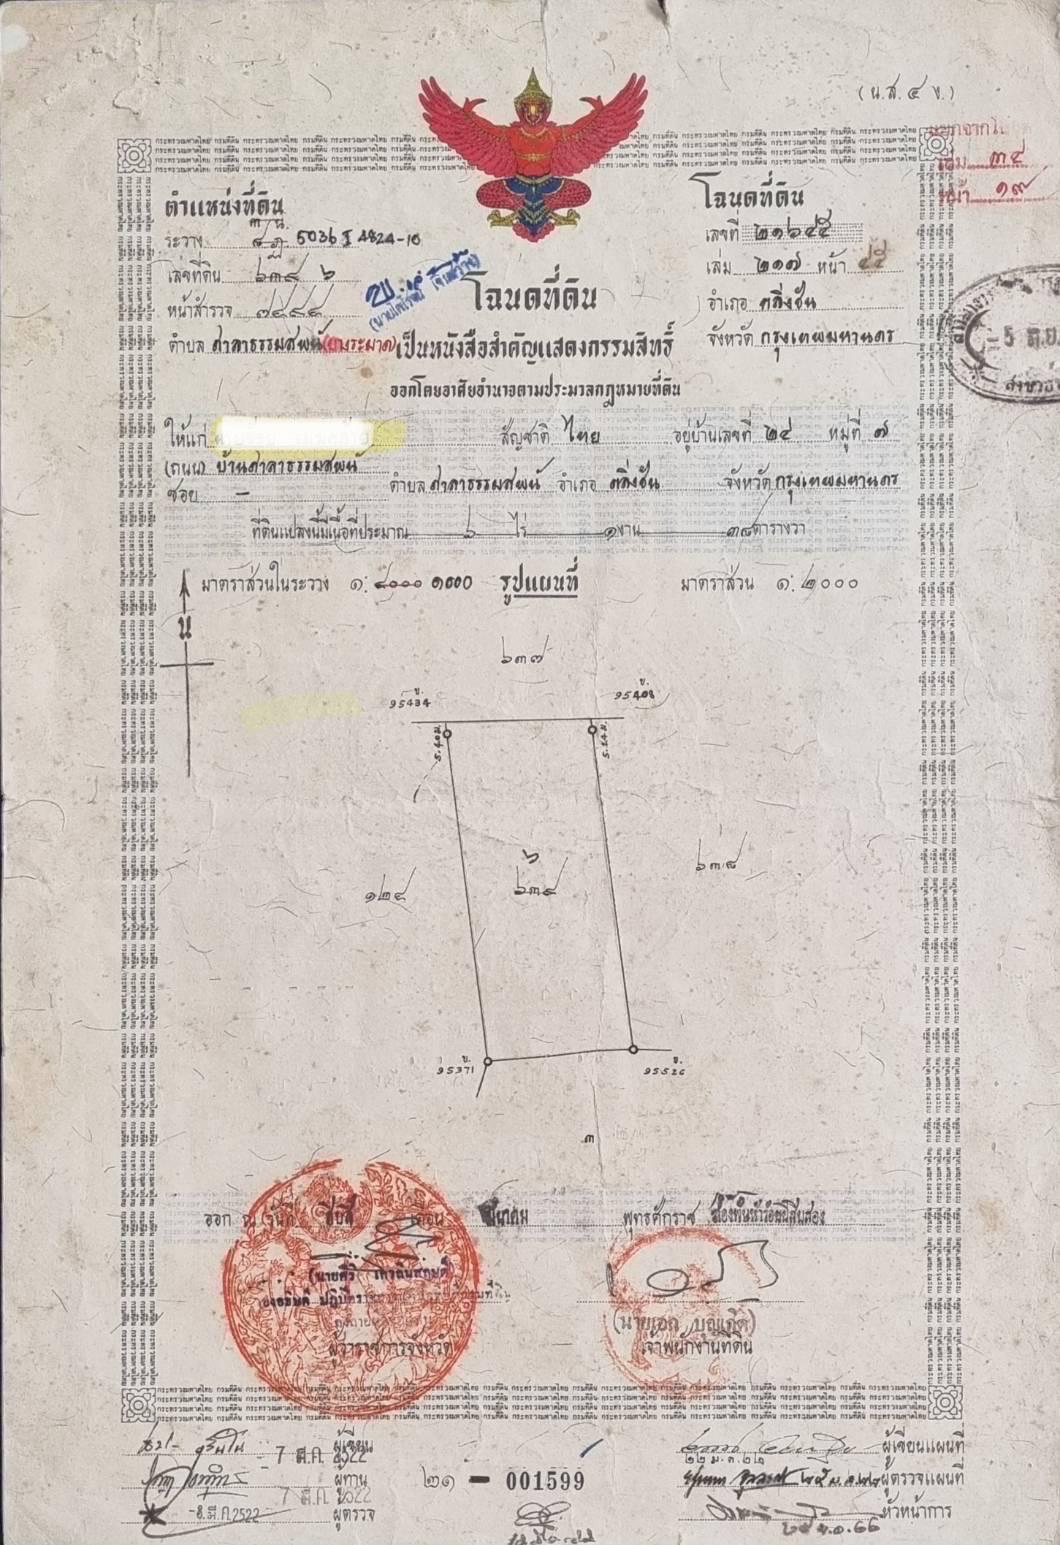 (น.ส. ๔ ง.)
เล่ม ๓๔
หน้า ๑๙
ตำแหน่งที่ดิน
ระวาง 5036 I 4824-10
เลขที่ดิน ๖๓๙ ๖
หน้าสำรวจ
ตำบล ศาลาธรรมสพน์ (บางระมาด)
โฉนดที่ดิน
เลขที่ ๒๑๖๔๕
เล่ม ๒๑๗ หน้า ๔๕
อำเภอ ตลิ่งชัน
จังหวัด กรุงเทพมหานคร
5 ต.ค.
โฉนดที่ดิน
เป็นหนังสือสำคัญแสดงกรรมสิทธิ์
ออกโดยอาศัยอำนาจตามประมวลกฎหมายที่ดิน
ให้แก่ สัญชาติ ไทย อยู่บ้านเลขที่ ๒๔ หมู่ที่ ๗
(ถนน) บ้านศาลาธรรมสพน์
ซอย – ตำบล ศาลาธรรมสพน์ อำเภอ ตลิ่งชัน จังหวัด กรุงเทพมหานคร
ที่ดินแปลงนี้มีเนื้อที่ประมาณ ๖ ไร่ ๑ งาน ๓๘ ตารางวา
มาตราส่วนในระวาง ๑: ๔๐๐๐ ๑๐๐๐ รูปแผนที่ มาตราส่วน ๑: ๒๐๐๐
น
๖๓๗
ข. ข.
95434 95408
5.40ม. 5.24ม.
๖
๑๒๔ ๖๓๙ ๖๓๘
ข. ข.
95371 95526
๓
ออก ณ วันที่ สิบสี่ เดือน มีนาคม พุทธศักราช สองพันห้าร้อยยี่สิบสอง
(นายเอก บุญเกิด)
ผู้ว่าราชการจังหวัด เจ้าพนักงานที่ดิน
7 มี.ค. 2522 ผู้เขียน ผู้เขียนแผนที่
๒๒ ม.ค. ๒๒
7 มี.ค. 2522 ผู้ทาน ผู้ตรวจแผนที่
๒๑ - 001599
-8 มี.ค. 2522 ผู้ตรวจ หัวหน้าการ